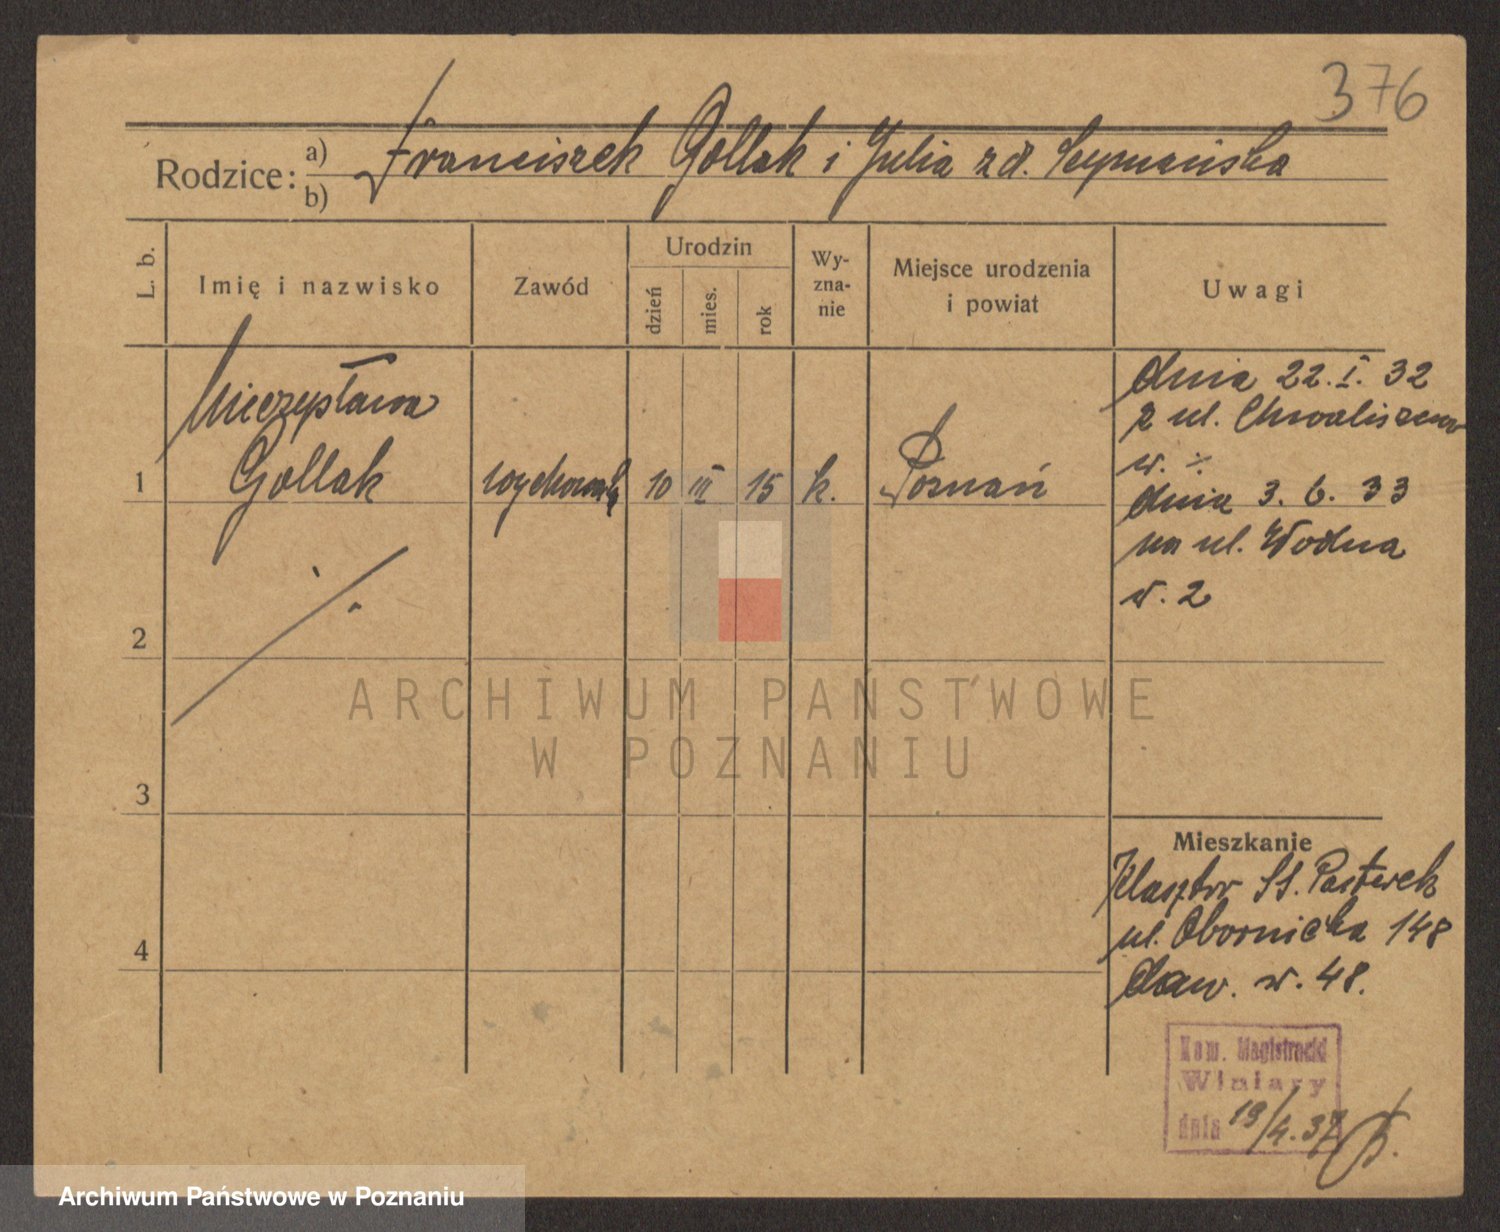 376
Rodzice: a) b) Franciszek Gollak i Julia zd. Szymańska
L. b.
Imię i nazwisko
Zawód
Urodzin
dzień
mies.
rok
Wy-
zna-
nie
Miejsce urodzenia
i powiat
Uwagi
1
Mieczysława
Gollak
10 III 15 k. Poznań
dnia 22. I. 32
z ul. Chwaliszewo
dnia 3. 6. 33
na ul. Wodna
2
3
4
Mieszkanie
Klasztor SS. Pasterek
ul. Obornicka 148
daw. 48.
Kom. Magistracki
Winiary
dnia 19/4.37
ARCHIWUM PAŃSTWOWE
W POZNANIU
Archiwum Państwowe w Poznaniu